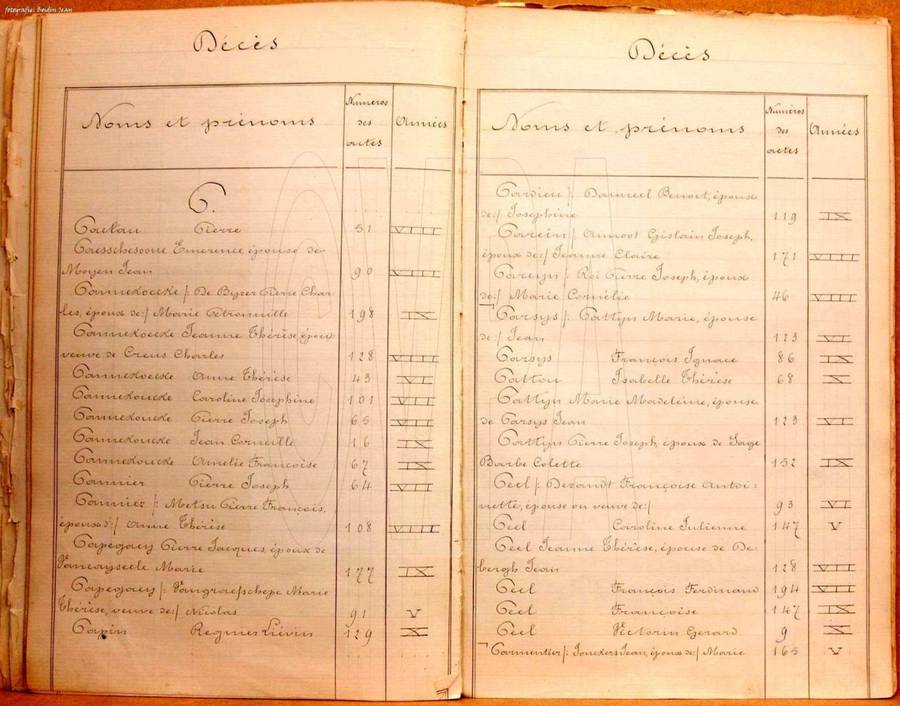 fotografie: Beidin Jean
Décès
Noms et prénoms
Numéros
des
actes
Années
P.
Pierre 51 VIII
Emerence, épouse de
Moyen Jean 90 VIII
Pannekoecke /: De Pierre Char-
les, époux de:/ Marie Pétronnille 198 IX
Pannekoecke Jeanne Thérèse
veuve de Creus Charles 128 VIII
Pannekoecke Anne Thérèse 43 VI
Pannekoucke Caroline Josephine 101 VII
Pannekoucke Pierre Joseph 65 VII
Pannekoucke Jean Corneille 16 IX
Pannekoucke Amelie Françoise 67 IX
Pannier Pierre Joseph 64 VII
Pannier /: Metsu Pierre François,
époux d:/ Anne Thérèse 108 VIII
Papegaey Pierre Jacques, époux de
Vancayseele Marie 177 IX
Papegaey /: Vangraefschepe Marie
Thérèse, veuve de:/ Nicolas 91 V
Papin Regnier Liévin 129 X
Décès
Noms et prénoms
Numéros
des
actes
Années
Pardieu /: Danneel Benoit, époux
de:/ Josephine 119 IX
Parein /: Annoot Gislain Joseph,
époux de:/ Jeanne Claire 171 VIII
Pareyn /: Rei Pierre Joseph, époux
de:/ Marie Cornélie 46 VIII
Parsys /: Pattyn Marie, épouse
de:/ Jean 123 VI
Parsys François Ignace 86 IX
Pattou Isabelle Thérèse 68 X
Pattyn Marie Madeleine, épouse
de Parsys Jean 123 VI
Pattyn Pierre Joseph, époux de Sage
Barbe Colette 152 IX
Peel /: Dezandt Françoise Antoi-
nette, épouse ou veuve de:/ 93 VI
Peel Caroline Julienne 147 V
Peel Jeanne Thérèse, épouse de De-
bergh Jean 128 VII
Peel François Ferdinand 194 VII
Peel Françoise 147 IX
Peel Victorin Gerard 9 X
Parmentier /: Jonckers Jean, époux de:/ Marie 165 V